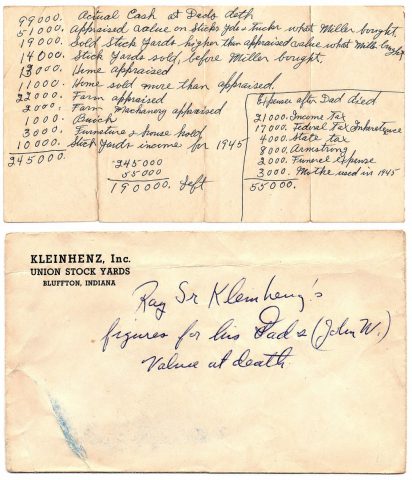 99000. Actual Cash at Dads deth
51000. Appraised value on Stocks yds & Trucks what Miller bought.
19000. Sold Stock Yards higher than appraised value what Miller bought
14000. Stock Yards sold, before Miller bought.
13000. Home appraised
11000. Home sold more than appraised.
22000. Farm appraised
2000. Farm Machinery appraised
1000. Buick
3000. Furniture & house hold
10000. Stock Yards income for 1945
245000.
245000
55000
190000. Left
Expenses after Dad died
21000. Income Tax
17000. Federal Tax Inheretence
4000. State tax
8000. Armstrong
2000. Funerel expense
3000. Mothe used in 1945
55000.
KLEINHENZ, Inc.
UNION STOCK YARDS
BLUFFTON, INDIANA
Ray Sr Kleinhenz's
figures for his Dads (John W.)
Value at death